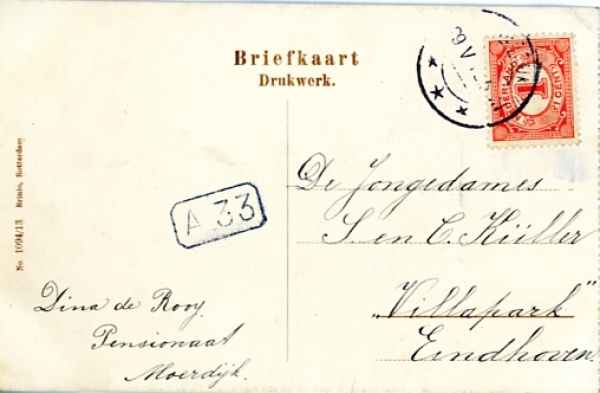 Briefkaart
Drukwerk.
No. 1094/13 Brinio, Rotterdam
A 33
De Jongedames
S. en C. Küller
„Villapark"
Eindhoven.
Dina de Rooy.
Pensionaat
Moerdijk.
1